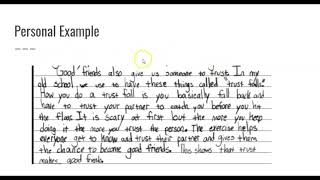 Personal Example
Good friends also give us someone to trust. In my
old school, we use to have these things called "trust falls."
How you do a trust fall is you basically fall back and
have to trust your partner to catch you before you hit
the floor. It is scary at first but the more you keep
doing it the more you trust the person. The exercise helps
everyone get to know and trust their partner and gives them
the chance to become good friends. This shows that trust
makes good friends.